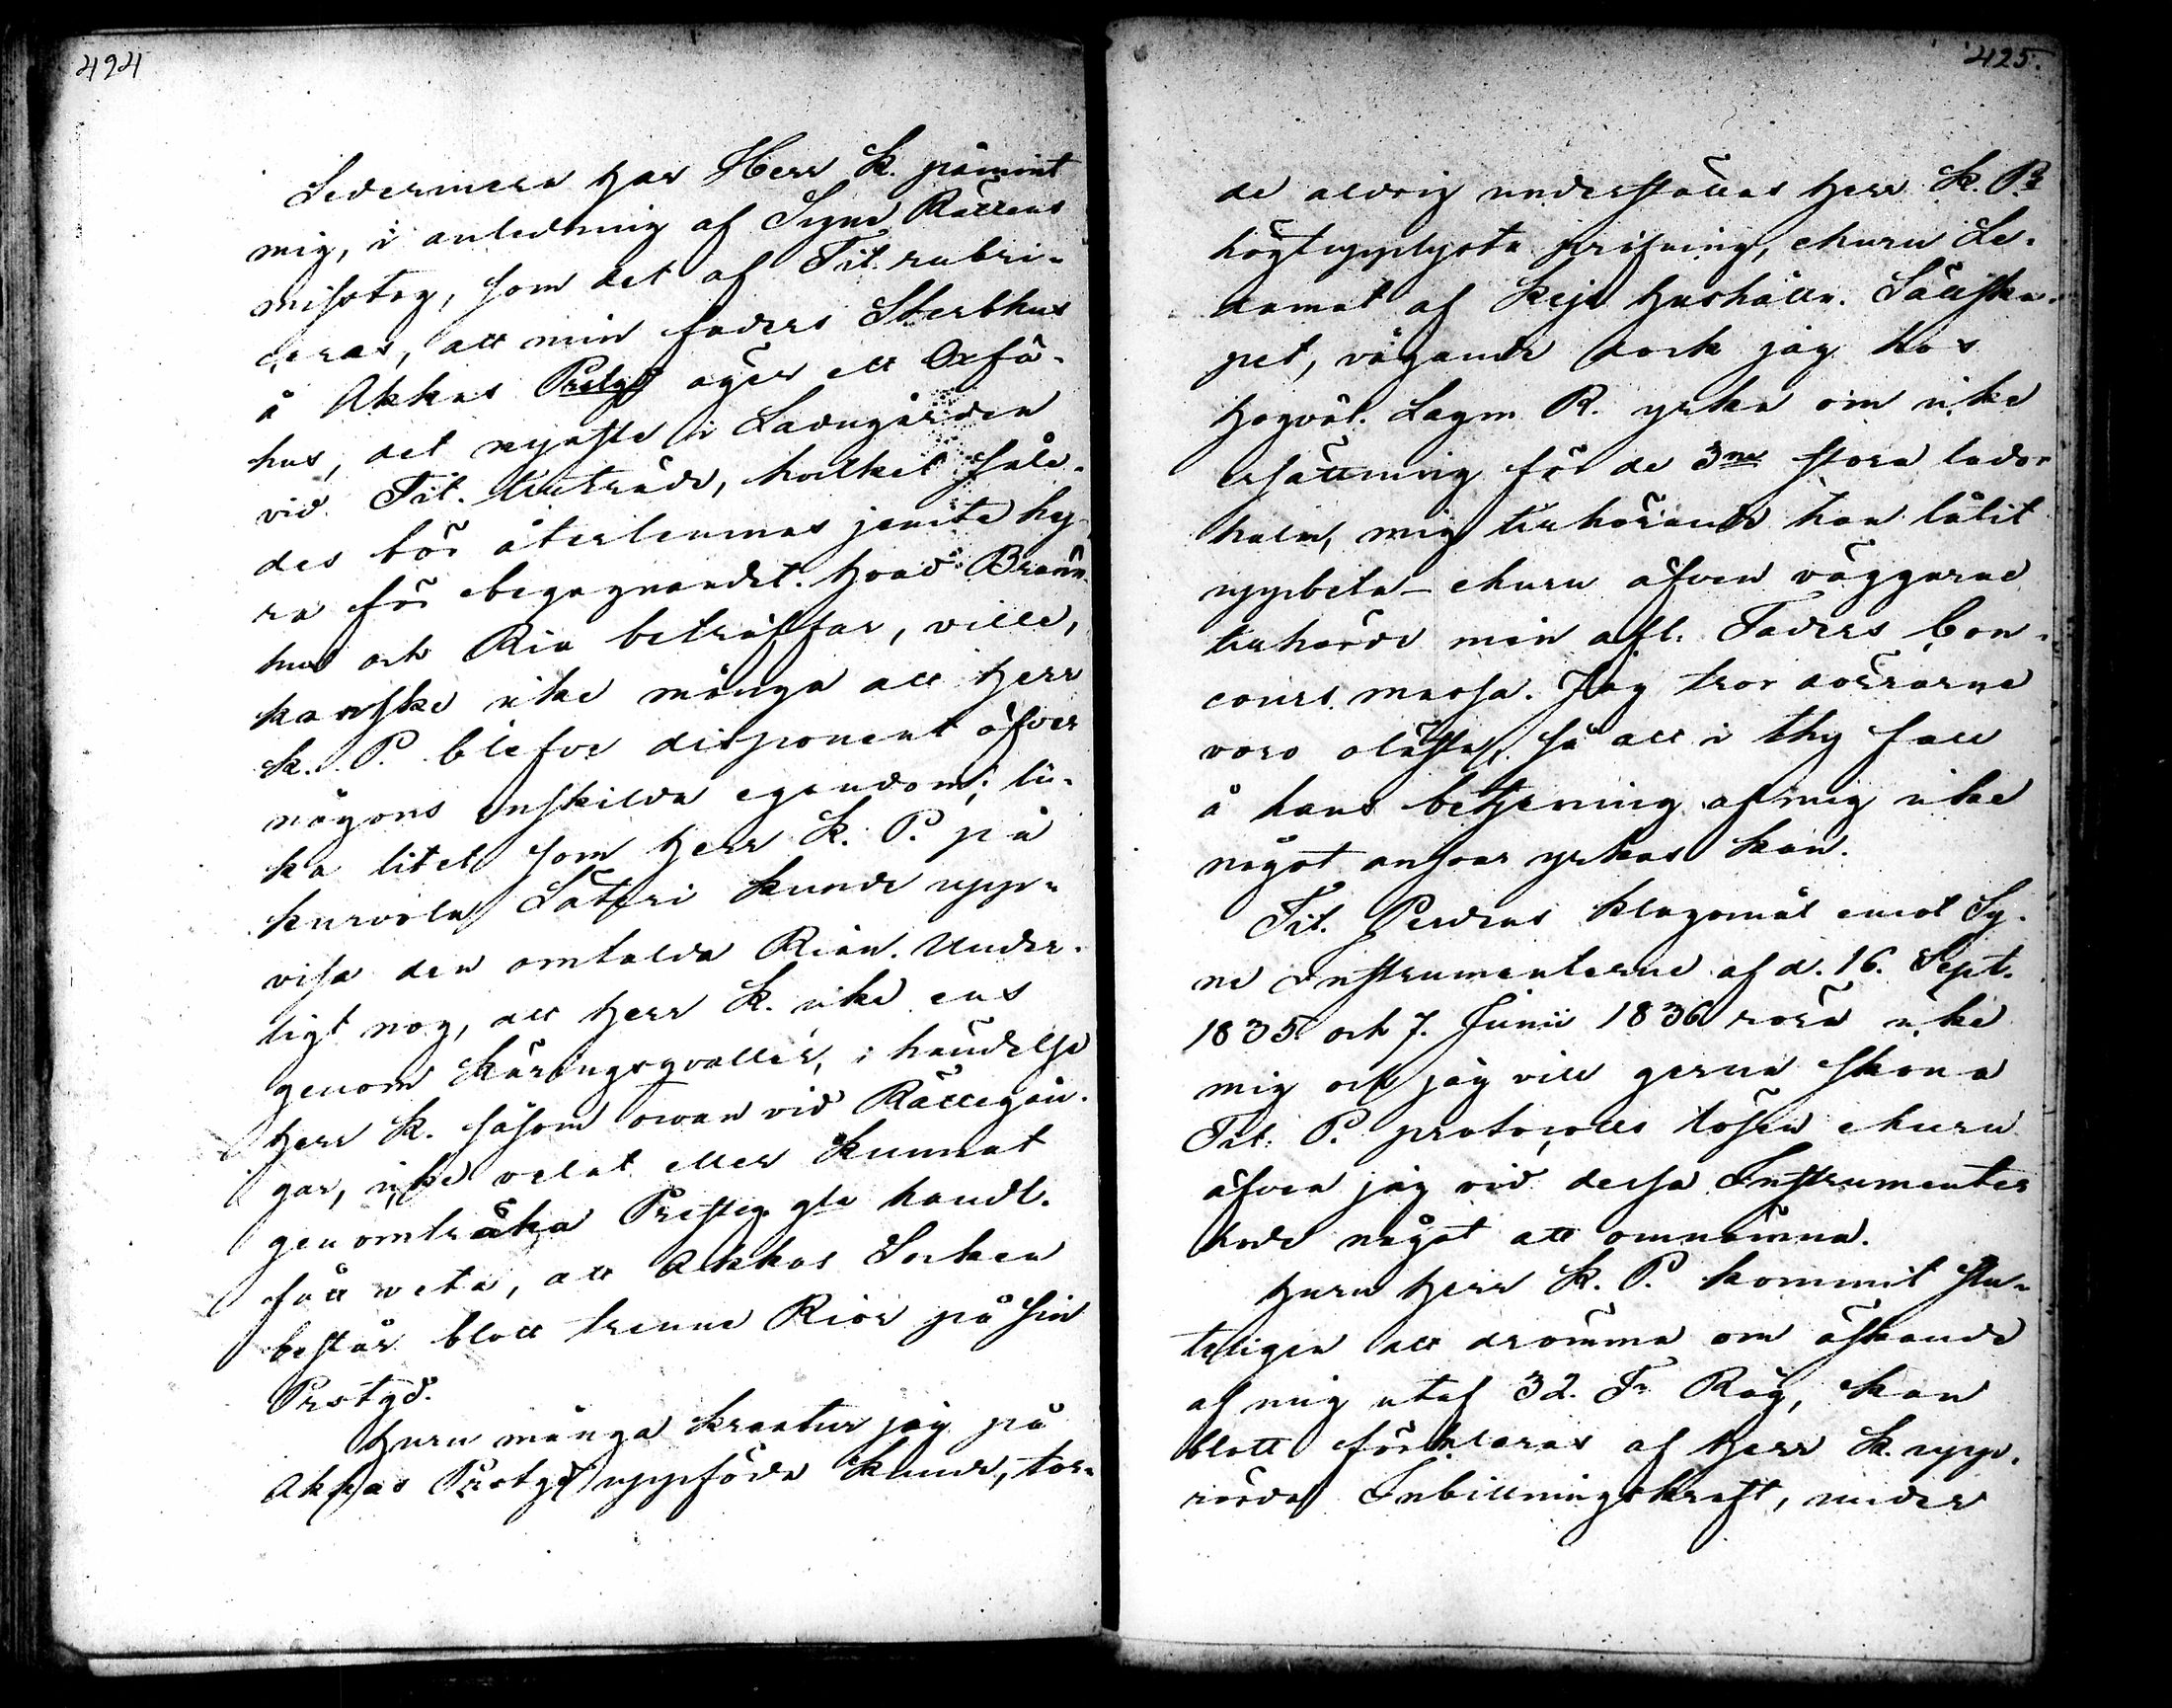 424
Sedermera har Herr K. påmint
mig, i anledning af Syne Rättens
misstag, som det af Tit. rubri-
ceras, att min faders Sterbhus
å Akkas Prstgd äger ett Oxfä-
hus, det nyaste i Ladugården
vid Tit. tillträde, hvilket såle-
des bör återlemnas jemte hy-
ra för begagnandet. Hvad Bränn-
hus och Ria beträffar, ville,
kanske icke många att Herr
K. P. blefve disponent öfver
någons enskilda egendom; li-
ka litet som Herr K. P. på
kurvola Säteri kunde upp-
visa den omtalda Rian. Under-
ligt nog, att Herr K. icke ens
genom Käringsqvaller, i händelse
Herr K. såsom owan vid Rättegån-
gar, icke velat eller kunnat
genomtråka Presteg. gla handl.
fått weta, att Akkas Socken
består blott trenne Rior på sin
Prstgd.
Huru många kreatur jag på
Akkas Prstgd uppföda kunde, tor-
425.
de aldrig underställas Herr K. P.s
högtupplysta pröfning, ehuru Le-
damot af Kejs Hushålln. Sällska-
pet, vågande dock jag hos
Högväl. Lagm R. yrka om icke
ersättning för de 3ne stora lador
halm, mig tillhörande han låtit
uppbeta – ehuru äfven väggarne
tillhörde min afl. Faders Con-
cours massa. Jag tror dörrarne
voro olåsta, så att i thy fall
å hans betjening af mig icke
något ansvar yrkas kan.
Tit. Perdens klagomål emot Sy-
ne Instrumenterne af d. 16. Sept.
1835 och 7. Junii 1836 röra icke
mig och jag vill gerna skona
Tit. P. protocolls lösen ehuru
äfven jag vid dessa Instrumenter
hade något att omnämna.
Huru Herr K. P. kommit slu-
teligen att drömma om äskande
af mig utaf 32. Tr Råg, kan
blott förklaras af Herr K. upp-
rörda Inbillningskraft, under